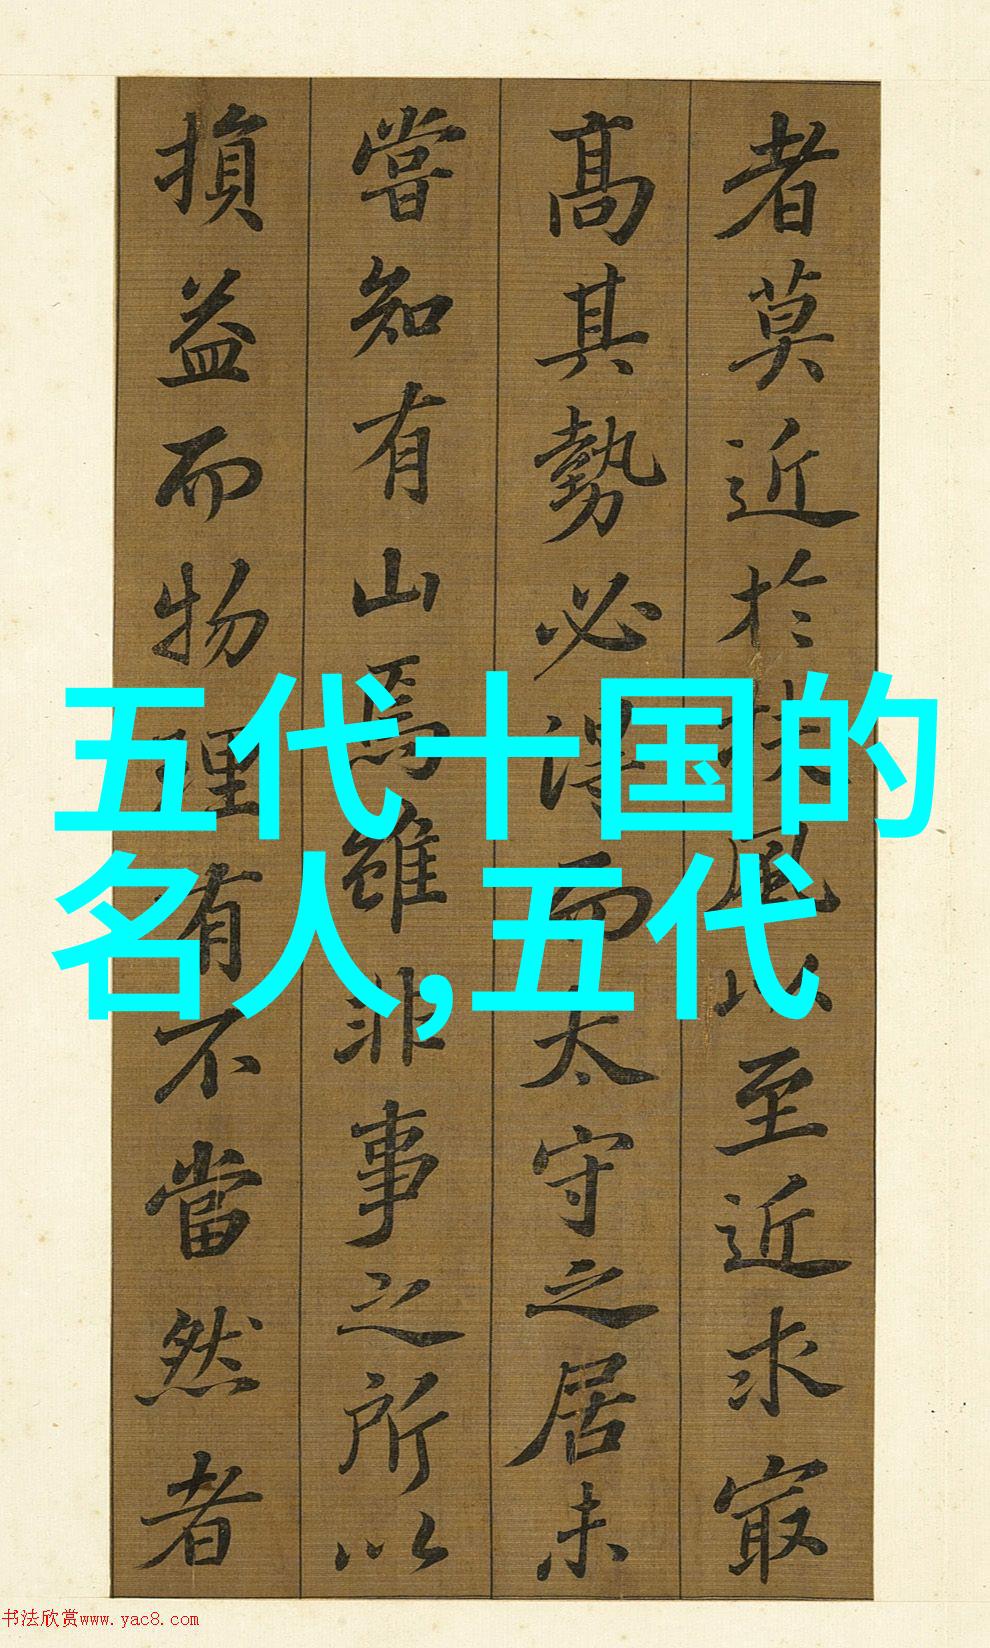 者莫近於扶風以至近求㝡
高其勢必得而太守之居未
嘗知有山焉雖非事之所以
損益而物理有不當然者
五代十国的
名人,五代
书法欣赏www.yac8.com